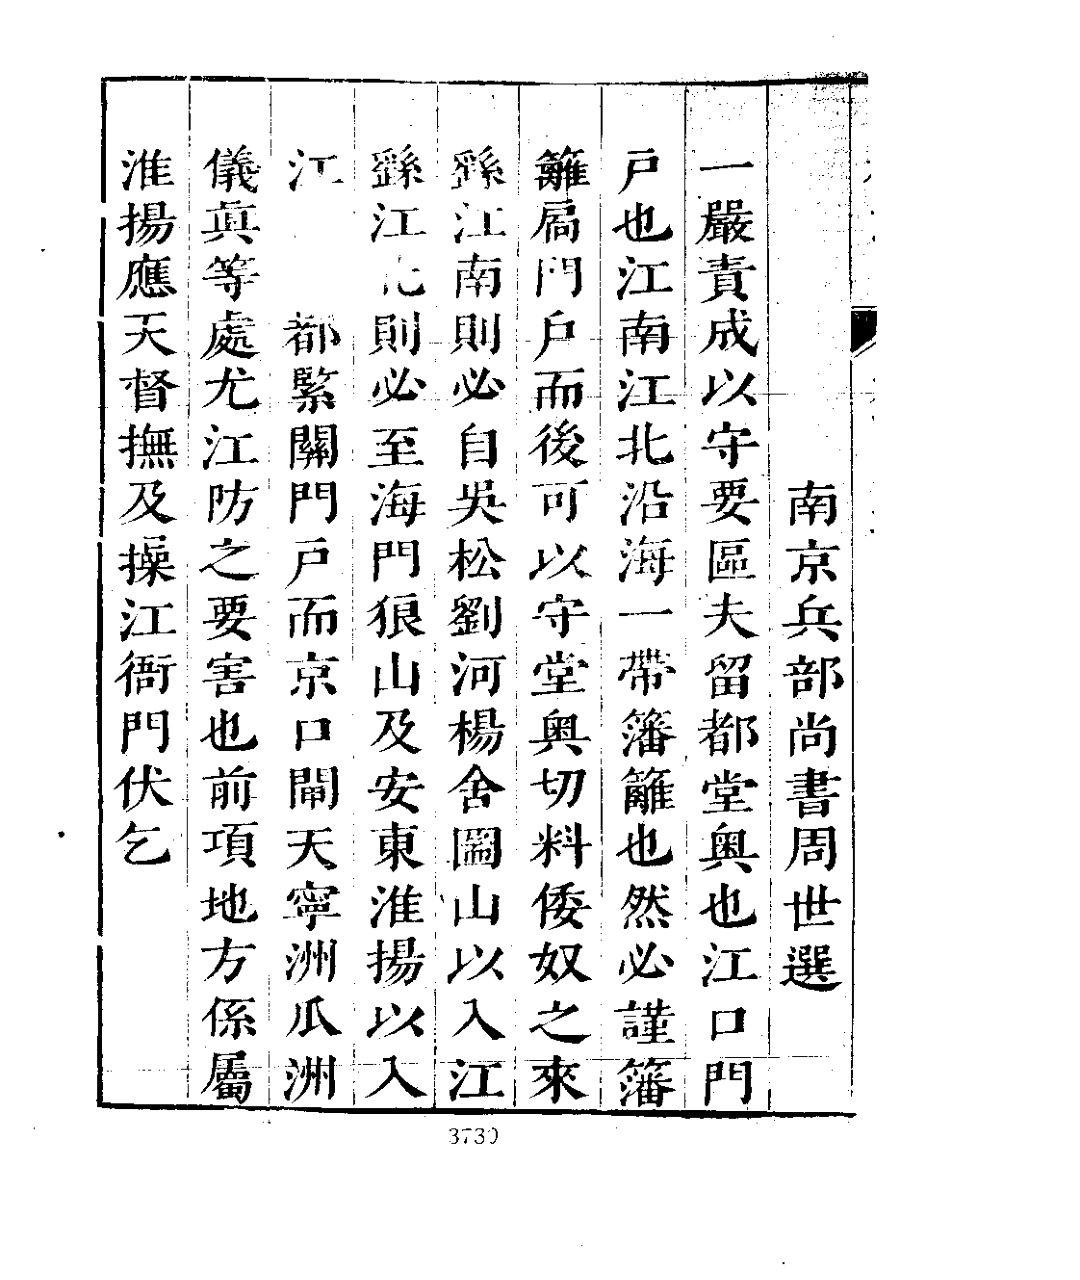 南京兵部尚書周世選
一嚴責成以守要區夫留都堂奥也江口門
戸也江南江北沿海一帶籓籬也然必謹籓
籬扃門戸而後可以守堂奥切料倭奴之來
繇江南則必自吳松劉河楊舍圌山以入江
繇江北則必至海門狼山及安東淮揚以入
江都緊關門戸而京口閘天寧洲瓜洲
儀眞等處尤江防之要害也前項地方係屬
淮揚應天督撫及操江衙門伏乞
3730